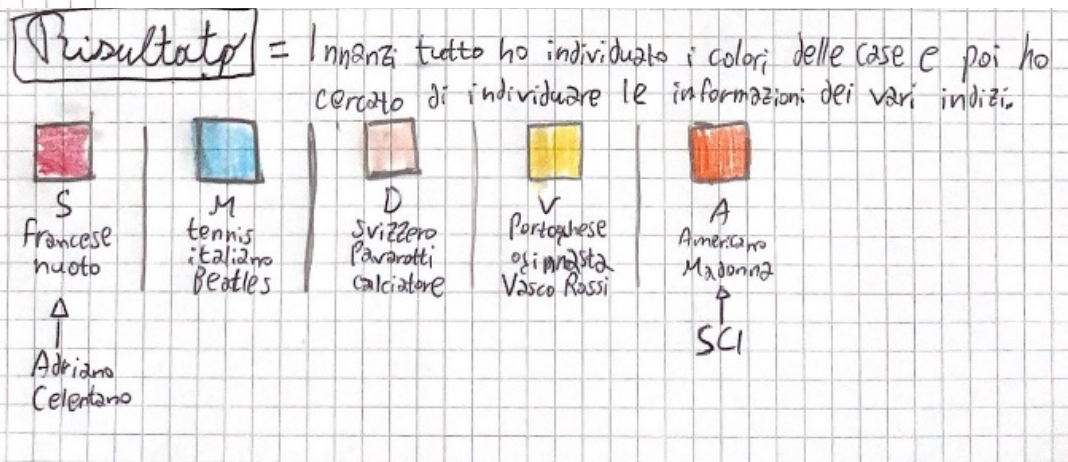 Risultato = Innanzi tutto ho individuato i colori delle case e poi ho
cercato di individuare le informazioni dei vari indizi.
S
francese
nuoto
Adriano
Celentano
M
tennis
italiano
Beatles
D
Svizzero
Pavarotti
calciatore
V
Portoghese
ginnasta
Vasco Rossi
A
Americano
Madonna
SCI